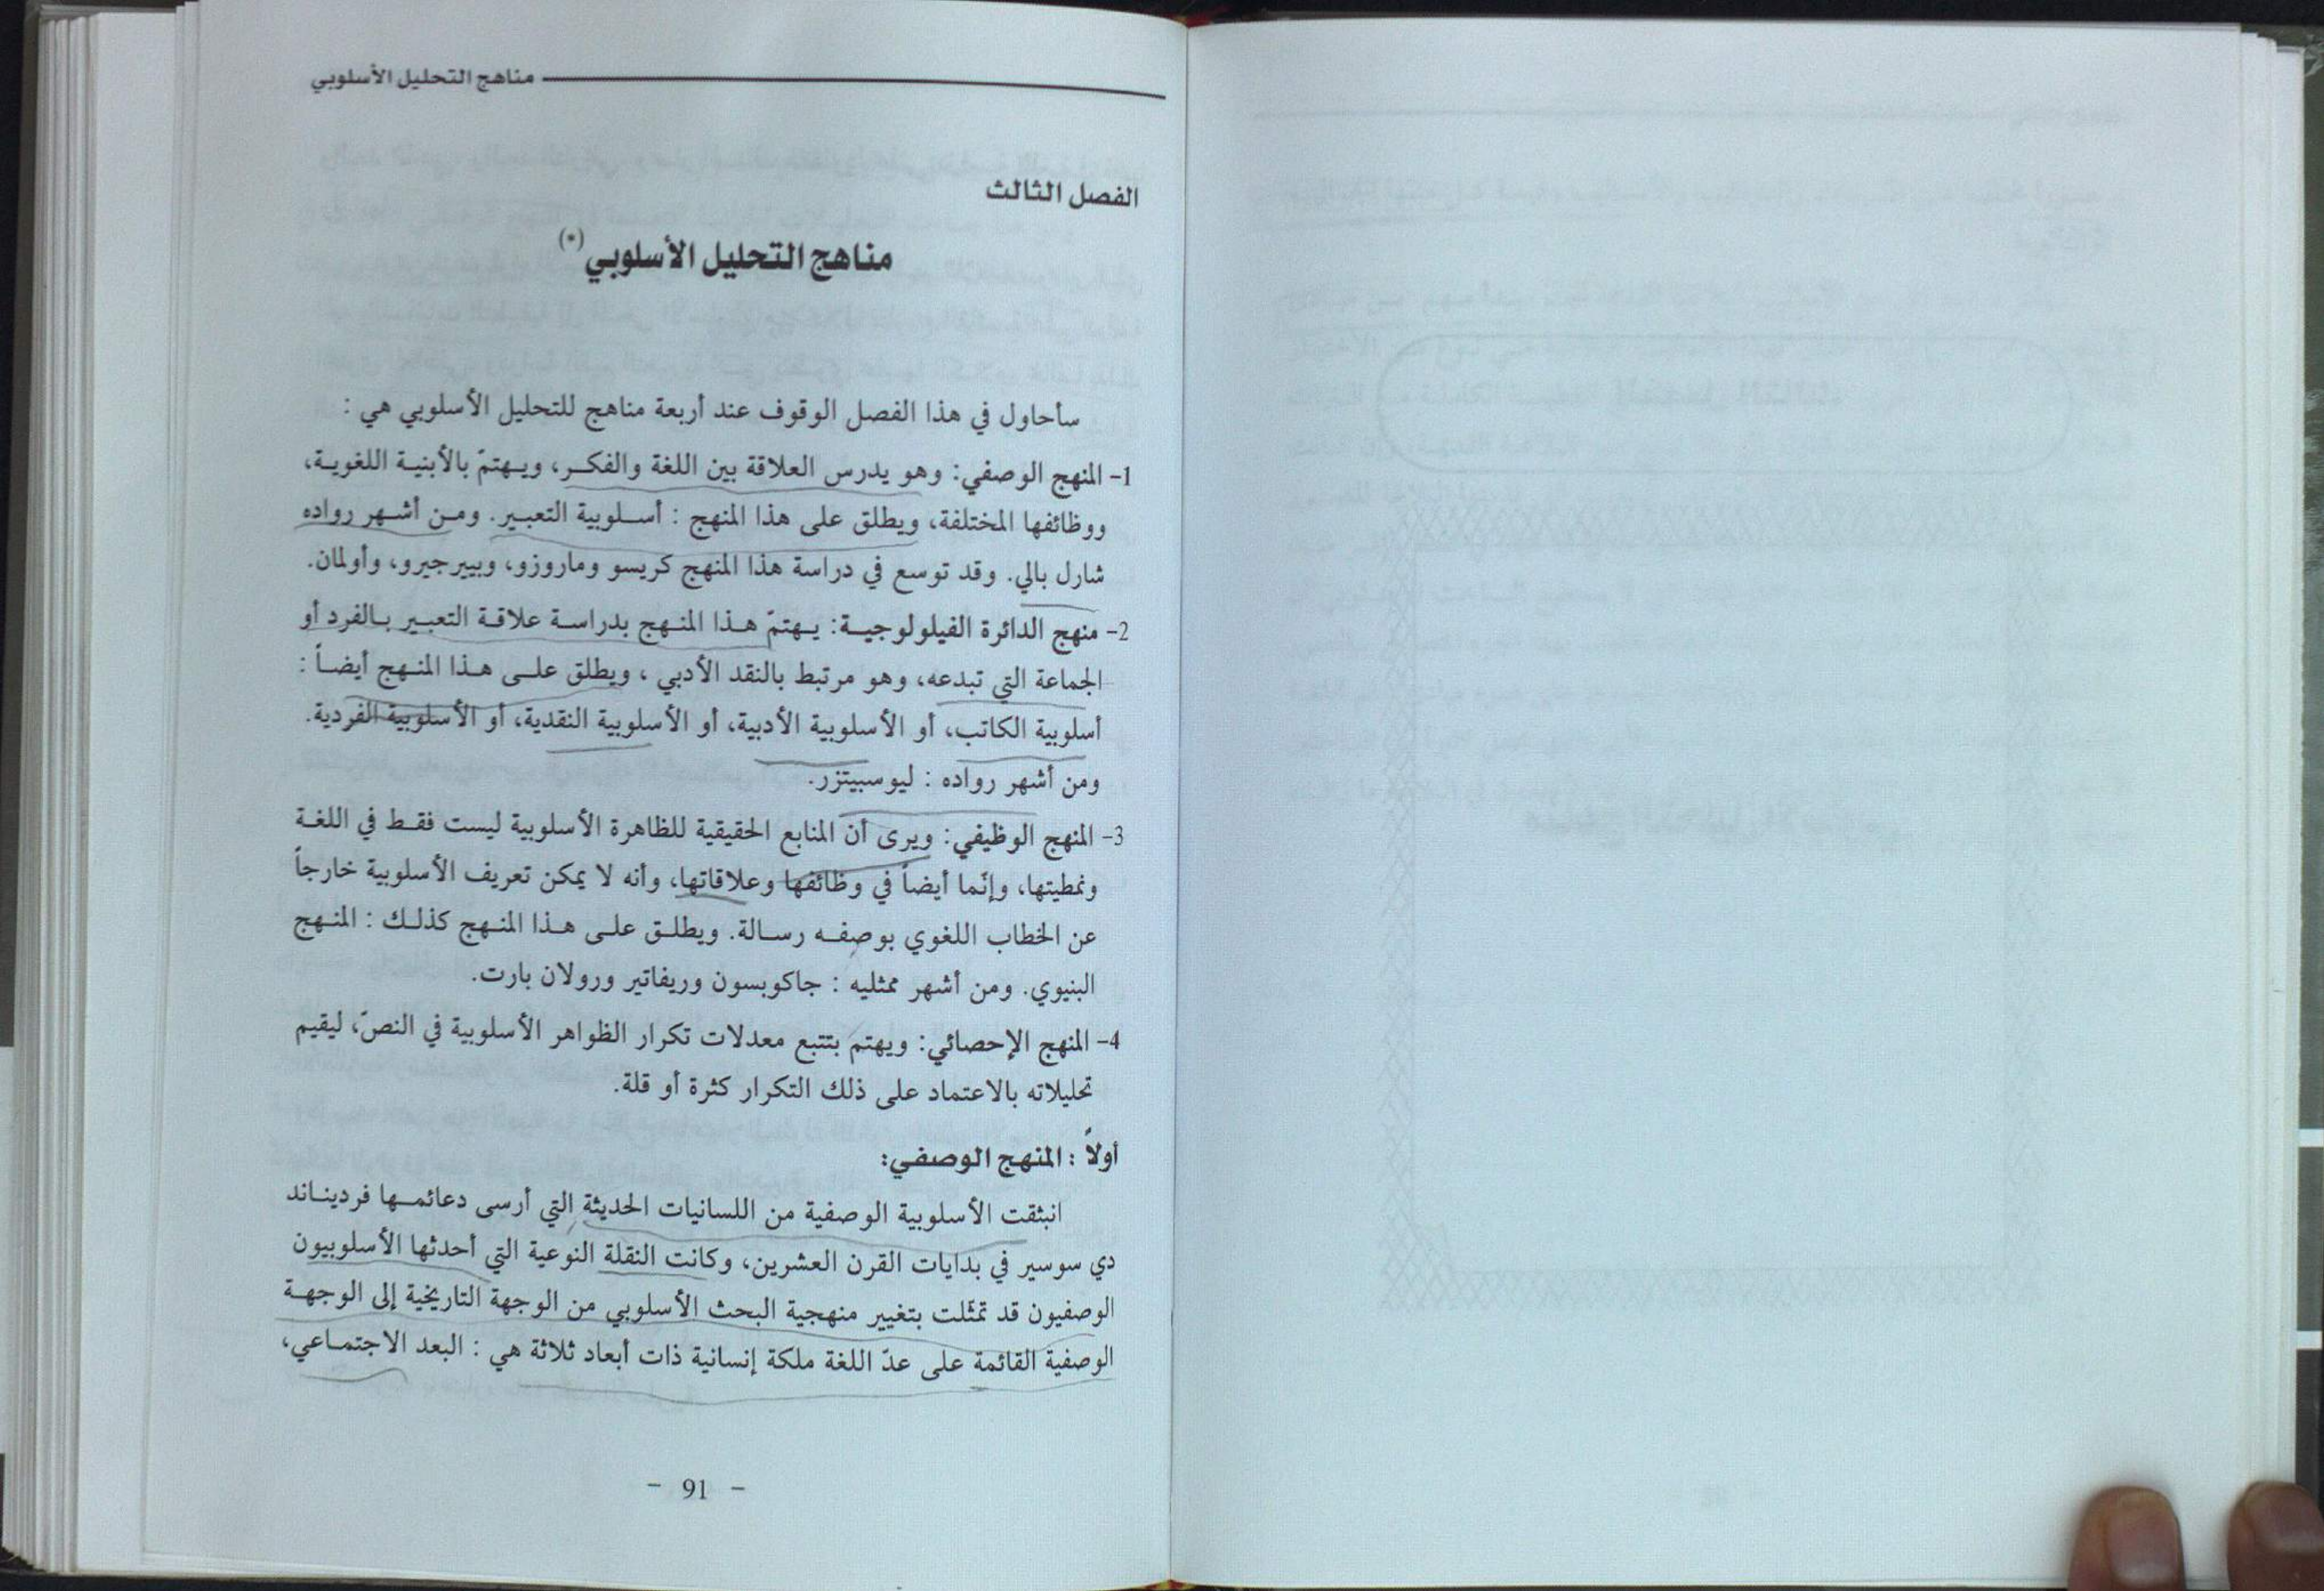 مناهج التحليل الأسلوبي
الفصل الثالث
مناهج التحليل الأسلوبي(*)
سأحاول في هذا الفصل الوقوف عند أربعة مناهج للتحليل الأسلوبي هي :
1- المنهج الوصفي: وهو يدرس العلاقة بين اللغة والفكر، ويهتمّ بالأبنية اللغوية،
ووظائفها المختلفة، ويطلق على هذا المنهج : أسلوبية التعبير. ومن أشهر رواده
شارل بالي. وقد توسع في دراسة هذا المنهج كريسو وماروزو، وبييرجيرو، وأولمان.
2- منهج الدائرة الفيلولوجية: يهتمّ هذا المنهج بدراسة علاقة التعبير بالفرد أو
الجماعة التي تبدعه، وهو مرتبط بالنقد الأدبي ، ويطلق على هذا المنهج أيضاً :
أسلوبية الكاتب، أو الأسلوبية الأدبية، أو الأسلوبية النقدية، أو الأسلوبية الفردية.
ومن أشهر رواده : ليوسبيتزر.
3- المنهج الوظيفي: ويرى أن المنابع الحقيقية للظاهرة الأسلوبية ليست فقط في اللغة
ونمطيتها، وإنّما أيضاً في وظائفها وعلاقاتها، وأنه لا يمكن تعريف الأسلوبية خارجاً
عن الخطاب اللغوي بوصفه رسالة. ويطلق على هذا المنهج كذلك : المنهج
البنيوي. ومن أشهر ممثليه : جاكوبسون وريفاتير ورولان بارت.
4- المنهج الإحصائي: ويهتم بتتبع معدلات تكرار الظواهر الأسلوبية في النصّ، ليقيم
تحليلاته بالاعتماد على ذلك التكرار كثرة أو قلة.
أولاً : المنهج الوصفي:
انبثقت الأسلوبية الوصفية من اللسانيات الحديثة التي أرسى دعائمها فرديناند
دي سوسير في بدايات القرن العشرين، وكانت النقلة النوعية التي أحدثها الأسلوبيون
الوصفيون قد تمثّلت بتغيير منهجية البحث الأسلوبي من الوجهة التاريخية إلى الوجهة
الوصفية القائمة على عدّ اللغة ملكة إنسانية ذات أبعاد ثلاثة هي : البعد الاجتماعي،
- 91 -